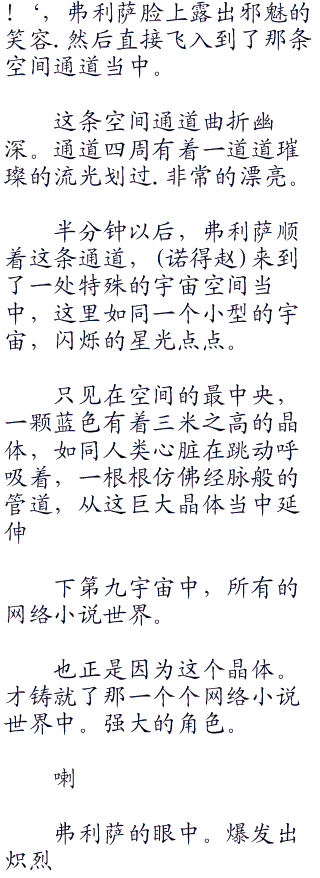 ！‘，弗利萨脸上露出邪魅的
笑容.然后直接飞入到了那条
空间通道当中。
这条空间通道曲折幽
深。通道四周有着一道道璀
璨的流光划过.非常的漂亮。
半分钟以后，弗利萨顺
着这条通道，(诺得赵)来到
了一处特殊的宇宙空间当
中，这里如同一个小型的宇
宙，闪烁的星光点点。
只见在空间的最中央，
一颗蓝色有着三米之高的晶
体，如同人类心脏在跳动呼
吸着，一根根仿佛经脉般的
管道，从这巨大晶体当中延
伸
下第九宇宙中，所有的
网络小说世界。
也正是因为这个晶体。
才铸就了那一个个网络小说
世界中。强大的角色。
喇
弗利萨的眼中。爆发出
炽烈